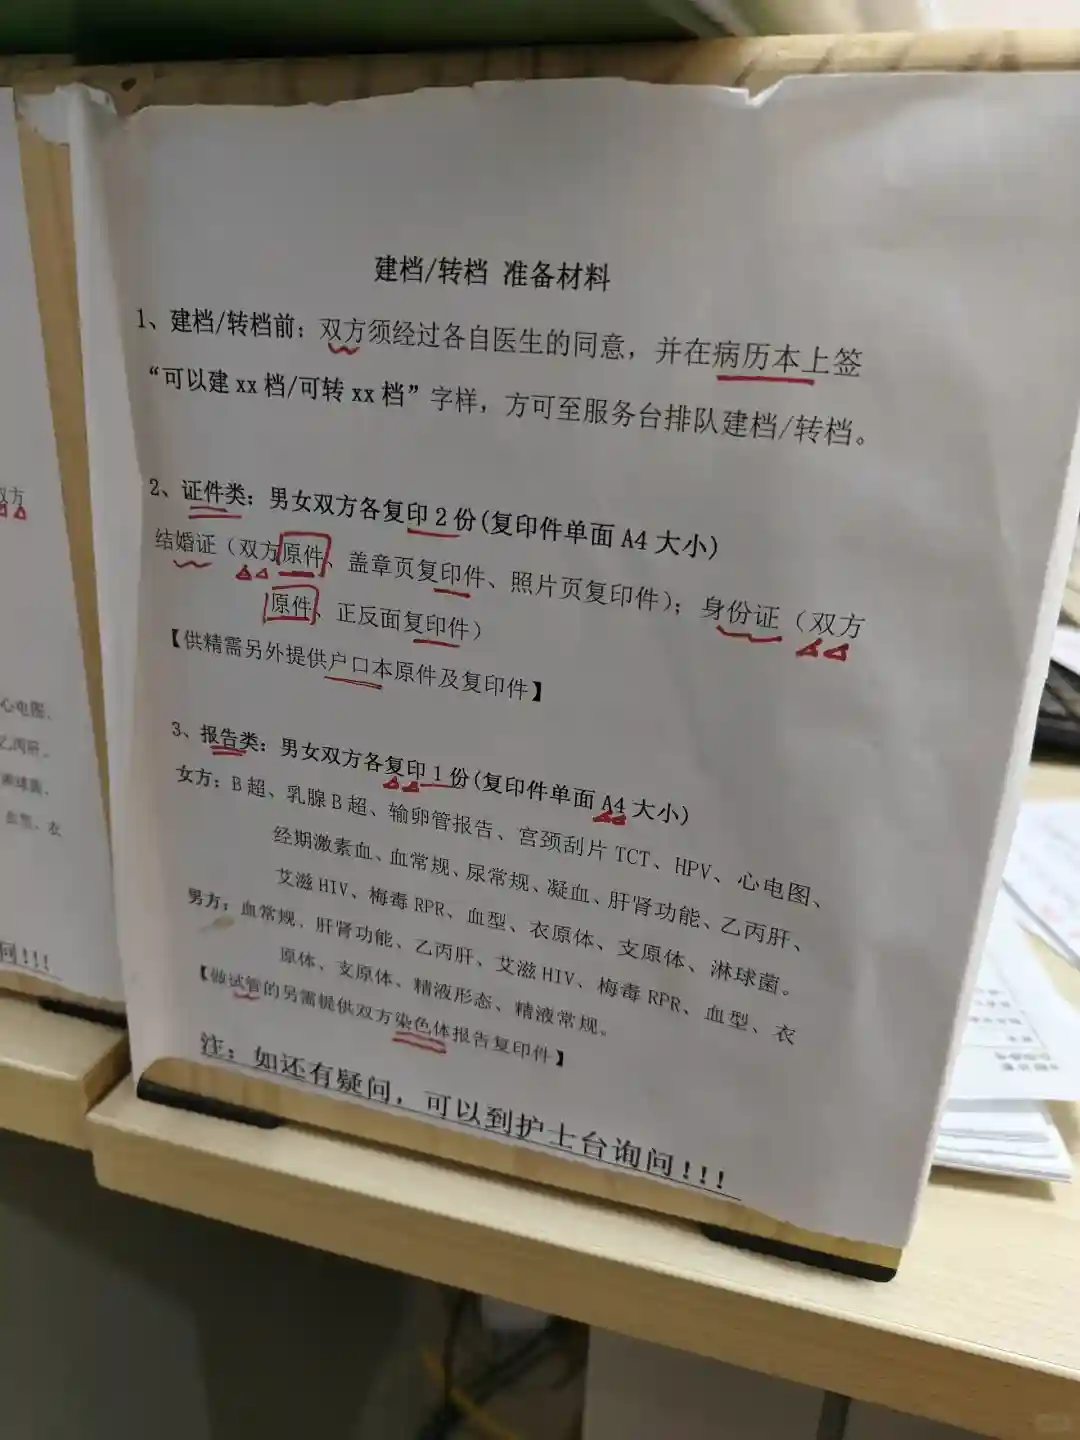 建档/转档 准备材料
1、建档/转档前：双方须经过各自医生的同意，并在病历本上签
“可以建 xx 档/可转 xx 档”字样，方可至服务台排队建档/转档。
2、证件类：男女双方各复印 2 份(复印件单面 A4 大小)
结婚证（双方原件、盖章页复印件、照片页复印件）；身份证（双方
原件、正反面复印件）
【供精需另外提供户口本原件及复印件】
3、报告类：男女双方各复印 1 份(复印件单面 A4 大小)
女方：B 超、乳腺 B 超、输卵管报告、宫颈刮片 TCT、HPV、心电图、
经期激素血、血常规、尿常规、凝血、肝肾功能、乙丙肝、
艾滋 HIV、梅毒 RPR、血型、衣原体、支原体、淋球菌。
男方：血常规、肝肾功能、乙丙肝、艾滋 HIV、梅毒 RPR、血型、衣
原体、支原体、精液形态、精液常规。
【做试管的另需提供双方染色体报告复印件】
注：如还有疑问，可以到护士台询问!!!
双方
心电图、
乙丙肝、
淋球菌。
血型、衣
问!!!